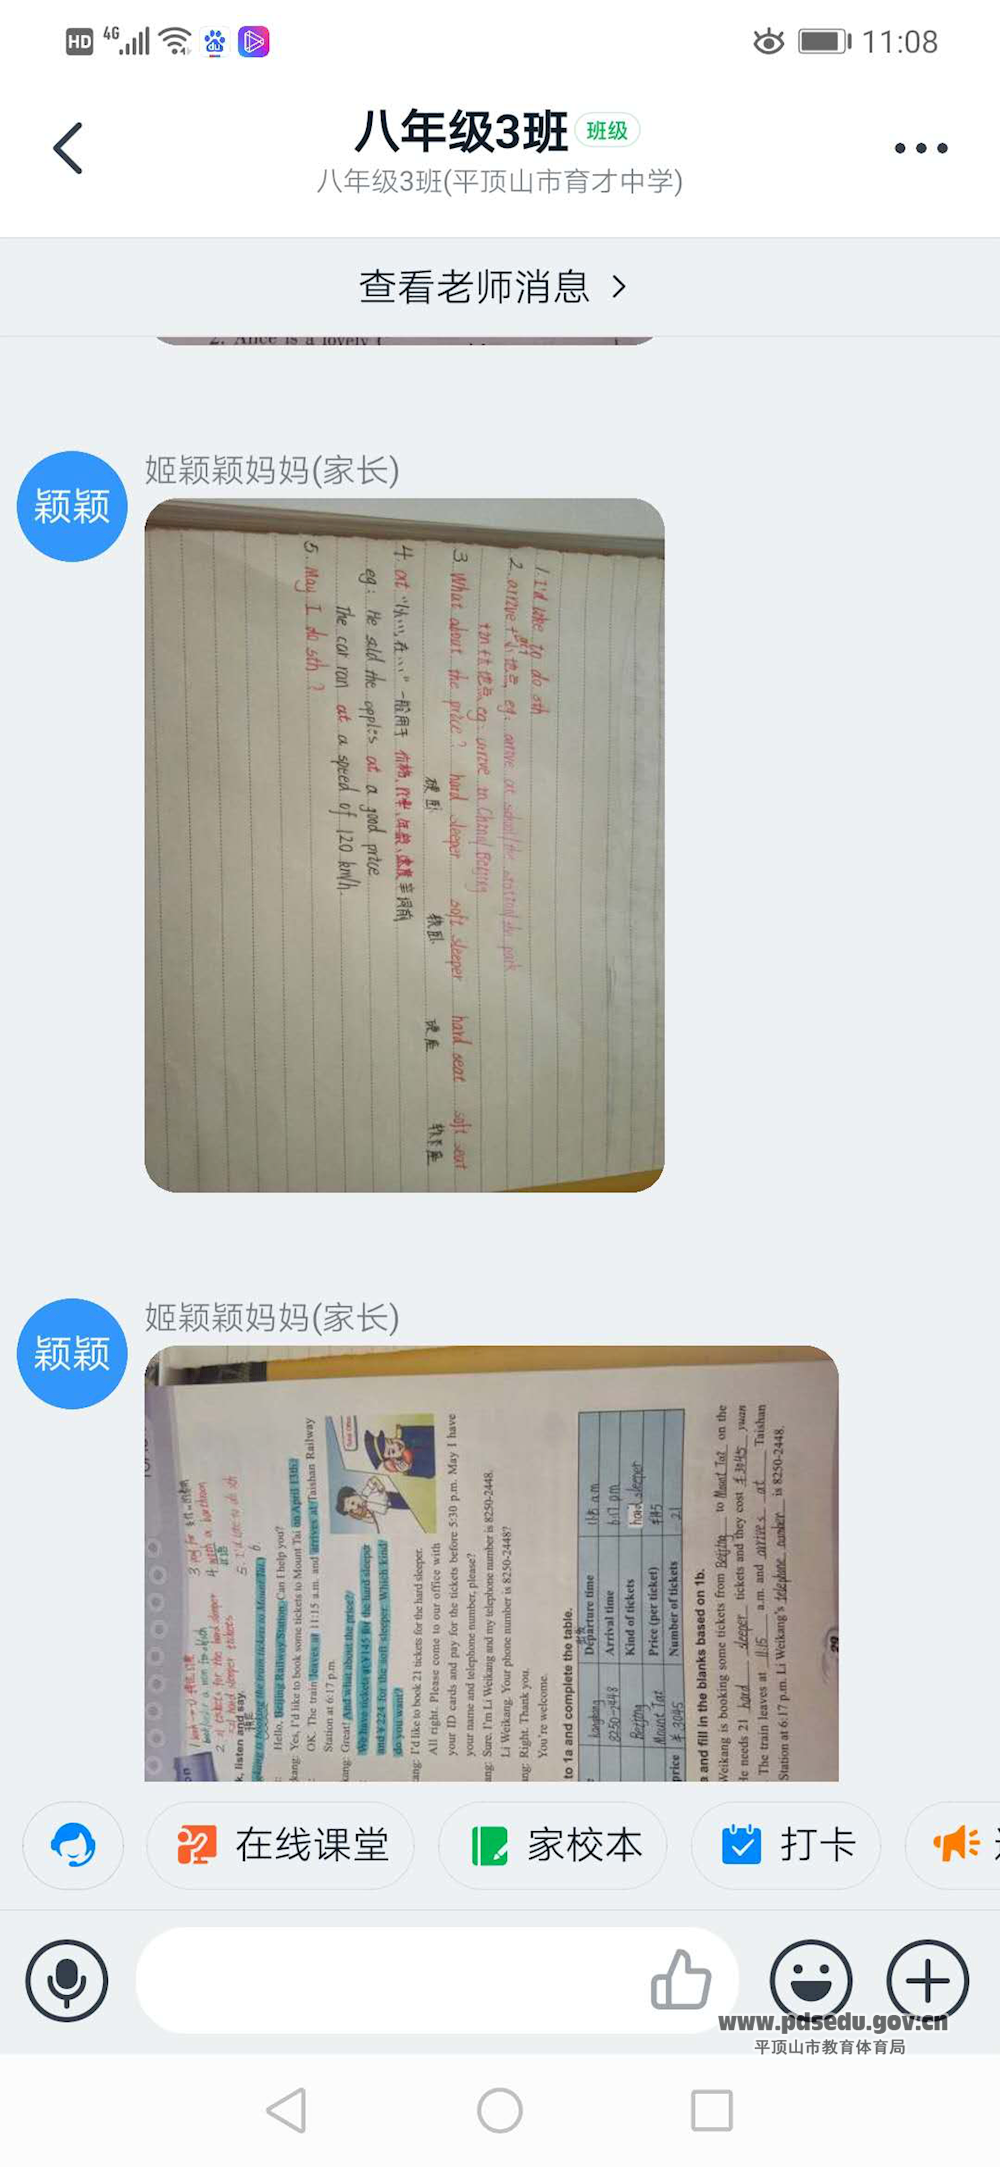 HD 4G 11:08
八年级3班 班级
八年级3班(平顶山市育才中学)
查看老师消息 >
2. Alice is a lovely
颖颖
姬颖颖妈妈(家长)
1. I'd like to do sth
2. arrive + at 小地点 eg: arrive at school/the station/the park
+in+大地点 eg: arrive in China/Beijing
3. What about the price? hard sleeper soft sleeper hard seat soft seat
硬卧 软卧 硬座 软座
4. at "以…,在…" 一般用于 价格、年龄、速度 等词前
eg: He sold the apples at a good price
The car ran at a speed of 120 km/h.
5. May I do sth?
颖颖
姬颖颖妈妈(家长)
5. I'd like to do sth
listen and say.
Hello, Beijing Railway Station. Can I help you?
kang: Yes, I'd like to book some tickets to Mount Tai on April 13th.
OK. The train leaves at 11:15 a.m. and arrives at Taishan Railway
Station at 6:17 p.m.
kang: Great! And what about the price?
We have tickets at ¥145 for the hard sleeper
and ¥224 for the soft sleeper. Which kind
do you want?
ang: I'd like to book 21 tickets for the hard sleeper.
All right. Please come to our office with
your ID cards and pay for the tickets before 5:30 p.m. May I have
your name and telephone number, please?
ang: Sure. I'm Li Weikang and my telephone number is 8250-2448.
Li Weikang. Your phone number is 8250-2448?
ng: Right. Thank you.
You're welcome.
to 1a and complete the table.
Departure time 11:15 a.m
8250-2448 Arrival time 6:17 pm
Beijing Kind of tickets hard sleeper
Mount Tai Price (per ticket) ¥145
price ¥ 3045 Number of tickets 21
a and fill in the blanks based on 1b.
Weikang is booking some tickets from Beijing to Mount Tai on the
He needs 21 hard sleeper tickets and they cost ¥3045 yuan
The train leaves at 11:15 a.m. and arrives at Taishan
Station at 6:17 p.m. Li Weikang's telephone number is 8250-2448.
29
在线课堂 家校本 打卡
www.pdsedu.gov.cn
平顶山市教育体育局